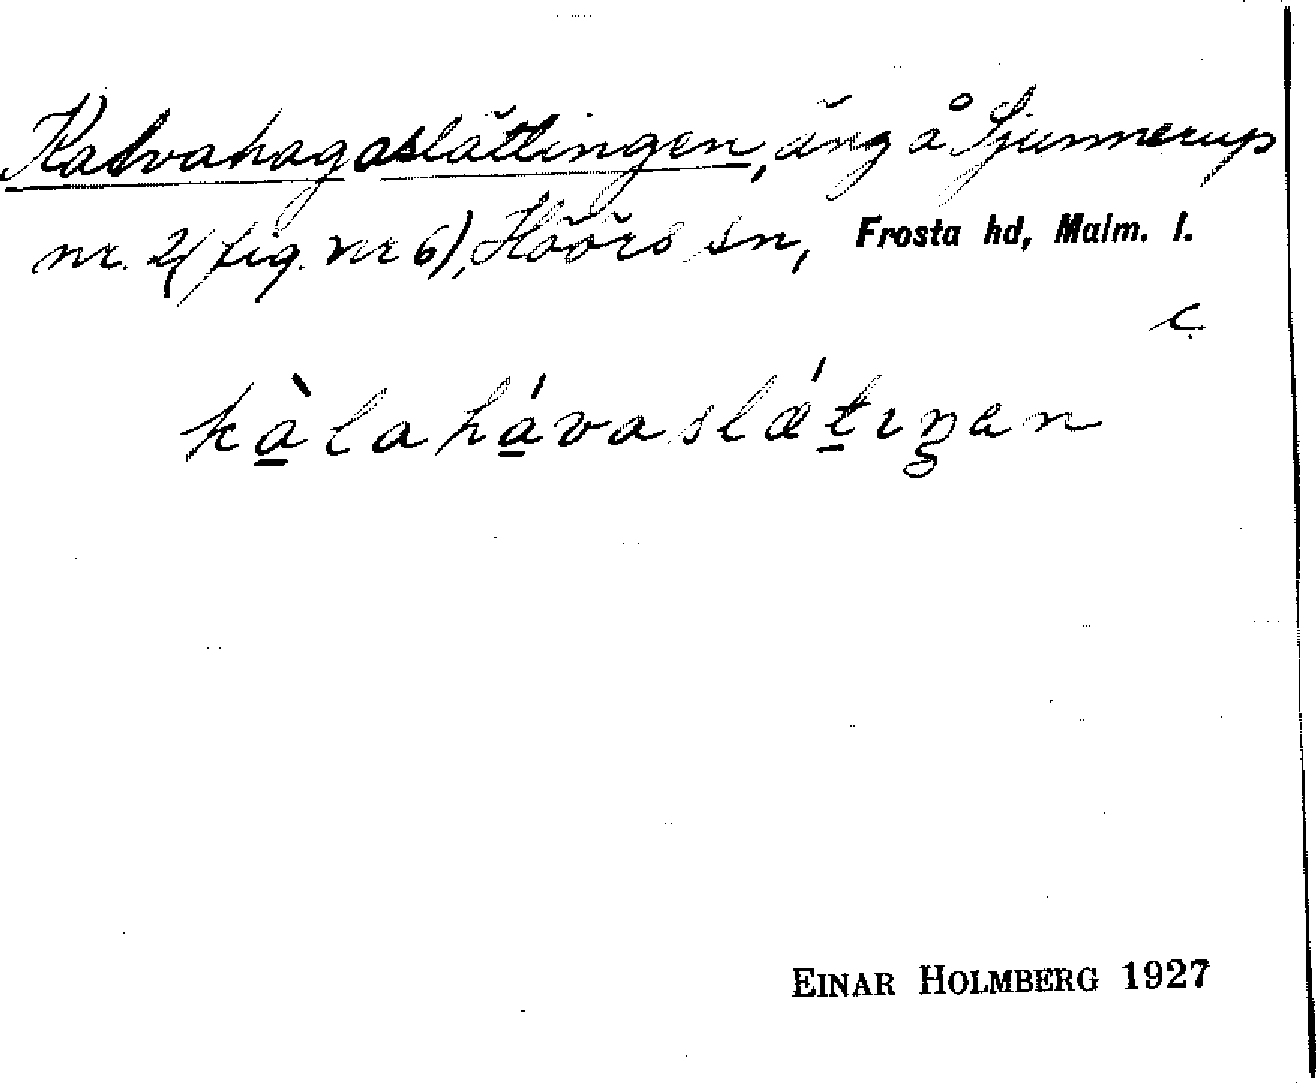 Kalvahagaslättingen, äng å Ljunnerup
nr. 2 (fig. nr 6), Höörs sn, Frosta hd, Malm. l.
c.
kàlahávaslǽtıŋen
EINAR HOLMBERG 1927